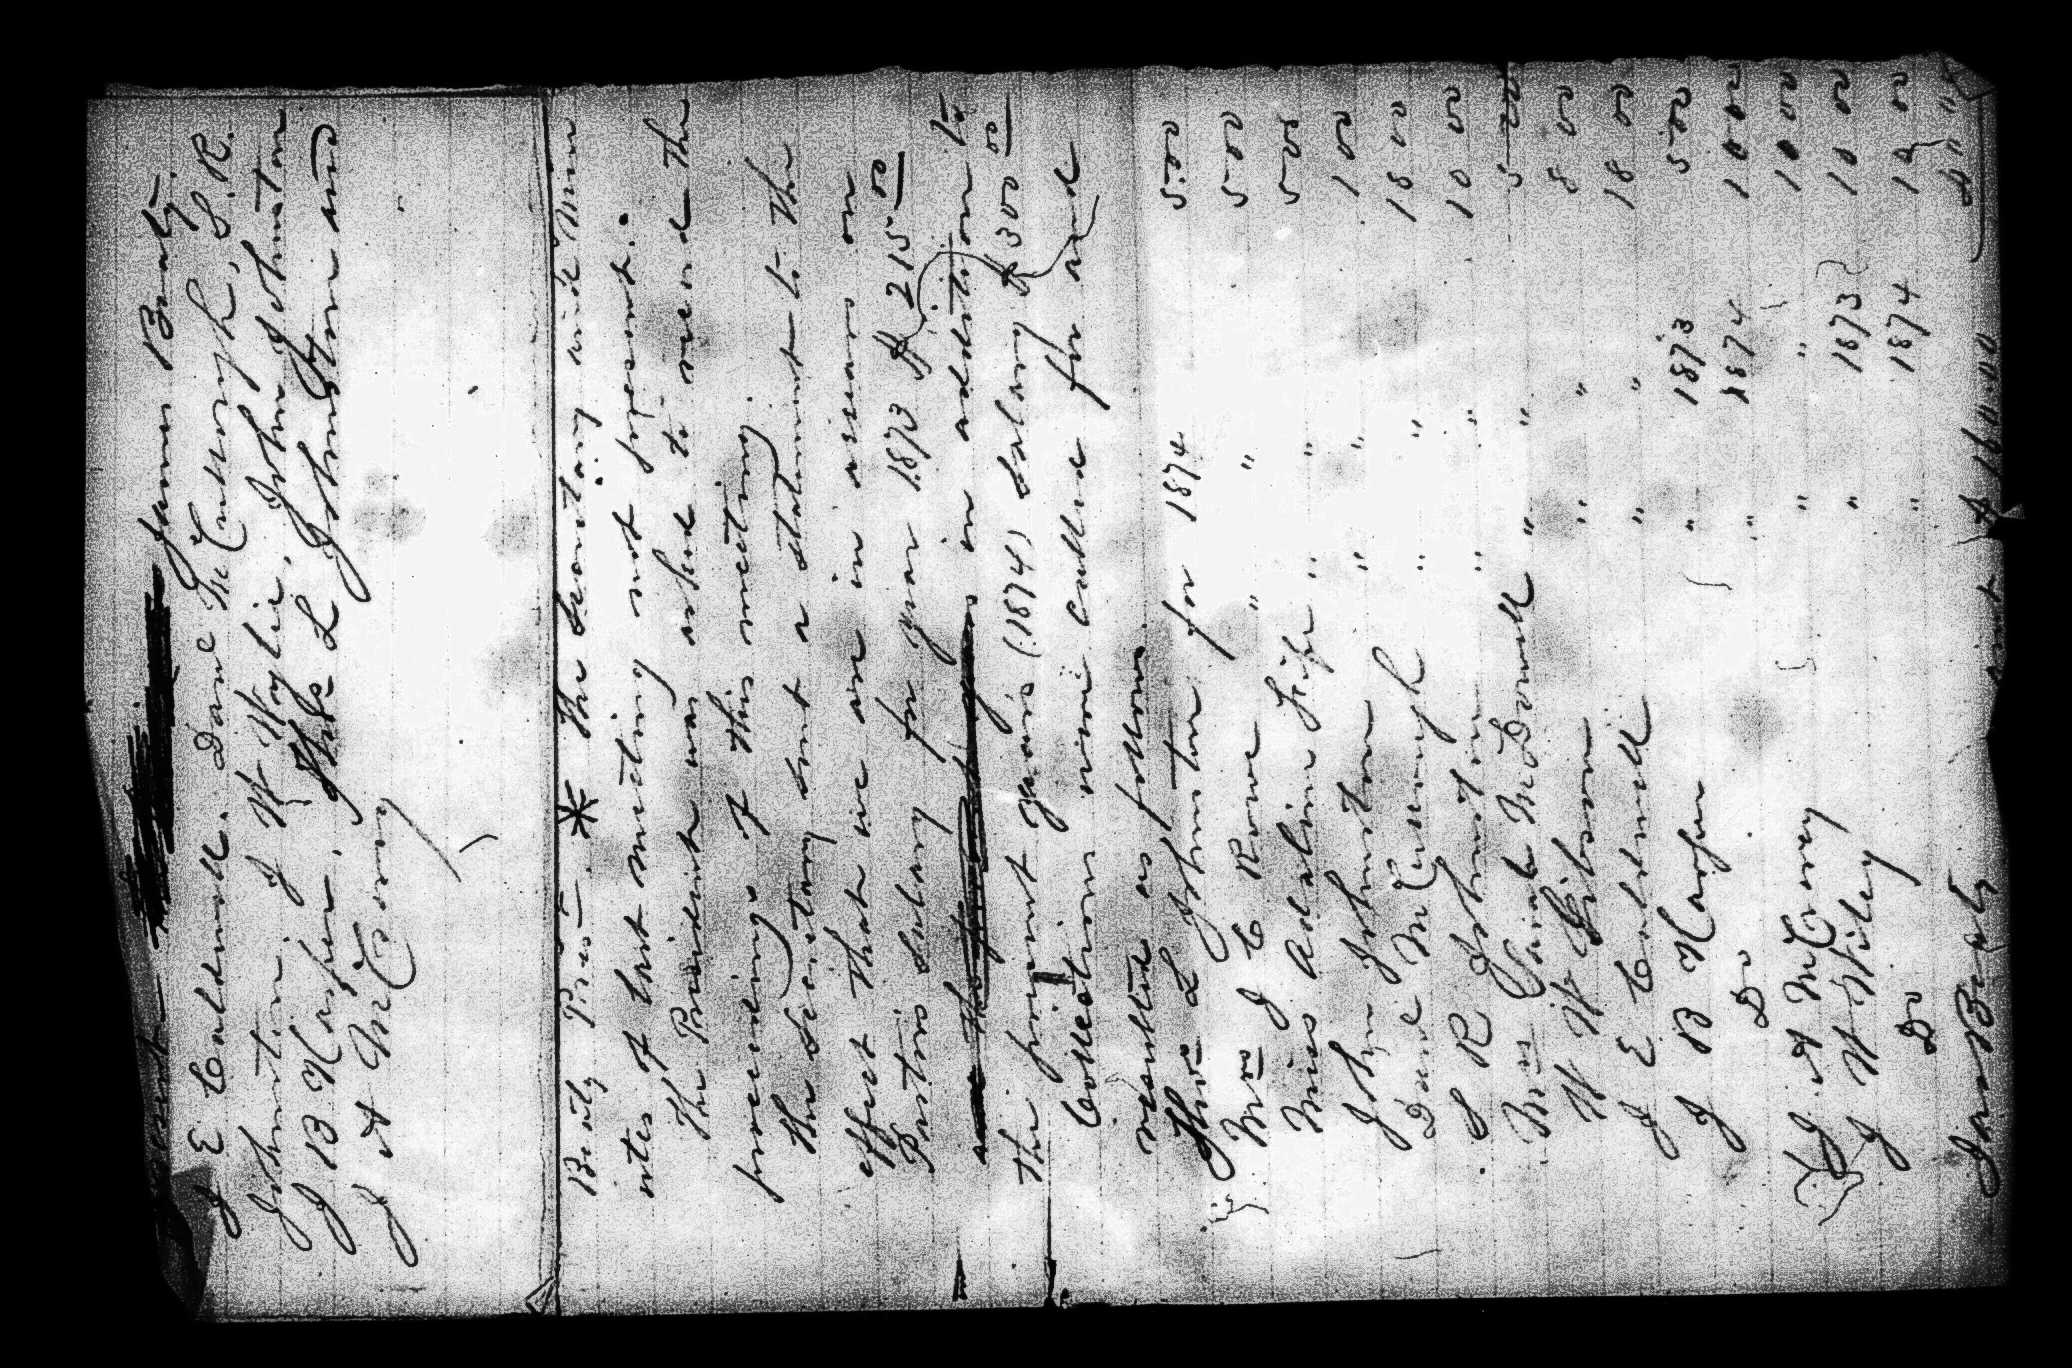 James Beaty.
J E Caldwell. Dane McCullough, S. R.
Johnston. J W Wylie. John Johnston
J B Harper. Thos L Johnston and
J A McCorey
Beaty Prest. * The Secretary and Min
utes of last meeting not present.
The President was asked to read the
proceedings of this meeting.
The Secretary sent a statement to the
effect that we are in arears on
Pastors Salary for year 1873 $215 00
in addition to
the present years (1874) Salary $300 00
Collection were called for and
resulted as follows
Thos L Johnston for 1874 5.00
Mrs J C Rowe " " 5 00
Miss Adaline Fife " " 5 00
John Johnston " " 1 00
Dane McCullough " " 18 00
S R Johnston " " 10 00
Mrs Sarah McDowell " " 5 00
W W Gibson " " 8 00
J E Caldwell " " 18 00
J B Harper " 1873 5 00
Do " 1874 10 00
J A McCorey " " 10 00
J W Wiley " 1873 10 00
Do " 1874 10 00
Jas Beaty $16.00